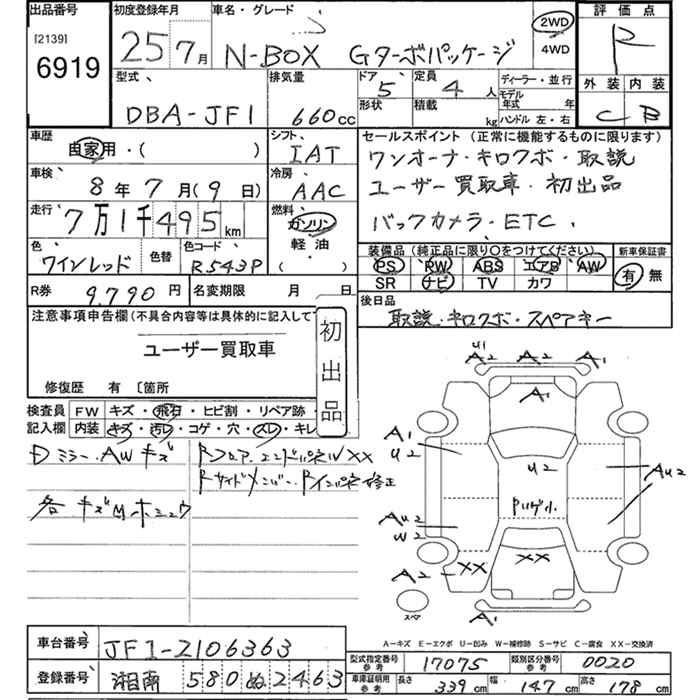 出品番号
[2139]
6919
初度登録年月
25年7月
車名・グレード
N-BOX Gターボパッケージ
2WD
4WD
評価点
R
外装 内装
C B
型式
DBA-JF1
排気量
660cc
ドア
5
定員
4人
形状
積載
kg
ディーラー・並行
モデル
年式 年
ハンドル 左・右
車歴
自家用・( )
シフト
IAT
車検
8年7月(9日)
冷房
AAC
走行
7万1千495km
燃料
ガソリン
軽油
( )
色
ワインレッド
色替
色コード
R543P
セールスポイント(正常に機能するものに限ります)
ワンオーナ・キロクボ・取説
ユーザー買取車・初出品
バックカメラ・ETC.
装備品(純正品に限り○をつけてください)
PS PW ABS エアB AW
SR ナビ TV カワ
新車保証書
有 無
R券 9.790円
名変期限 月 日
後日品
取説・キロクボ・スペアキー
注意事項申告欄(不具合内容等は具体的に記入して
ユーザー買取車
修復歴 有 〔箇所
初出品
検査員
記入欄
FW キズ・飛石・ヒビ割・リペア跡・
内装 キズ・汚レ・コゲ・穴・スレ・キレ
ミラー.AWキズ
各キズMホシュウ
Rフロア.エンドパネルXX
Rサイドメンバー.Rインパネ修正
U1
A2 A2 A1
A1
A1
U2
U2
AU2
AU2
W2
A2 XX
XX
A1
スペア
A-キズ E-エクボ U-凹み W-補修跡 S-サビ C-腐食 XX-交換済
車台番号
JF1-2106363
登録番号
湘南 580 ぬ 2463
型式指定番号
参考
17075
類別区分番号
参考
0020
車庫証明用
参考
長さ 339cm
幅 147cm
高さ 178cm